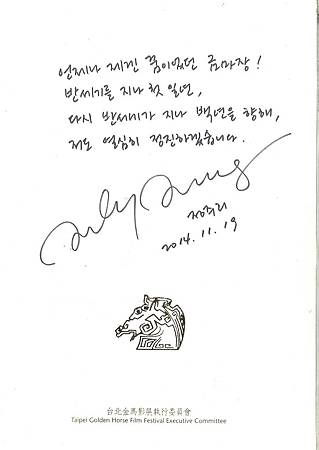 언제나 제겐 꿈이었던 금마장!
반세기를 지나 첫 일년,
다시 반세기가 지나 백년을 향해,
저도 열심히 정진하겠습니다.
2014. 11. 19
台北金馬影展執行委員會
Taipei Golden Horse Film Festival Executive Committee